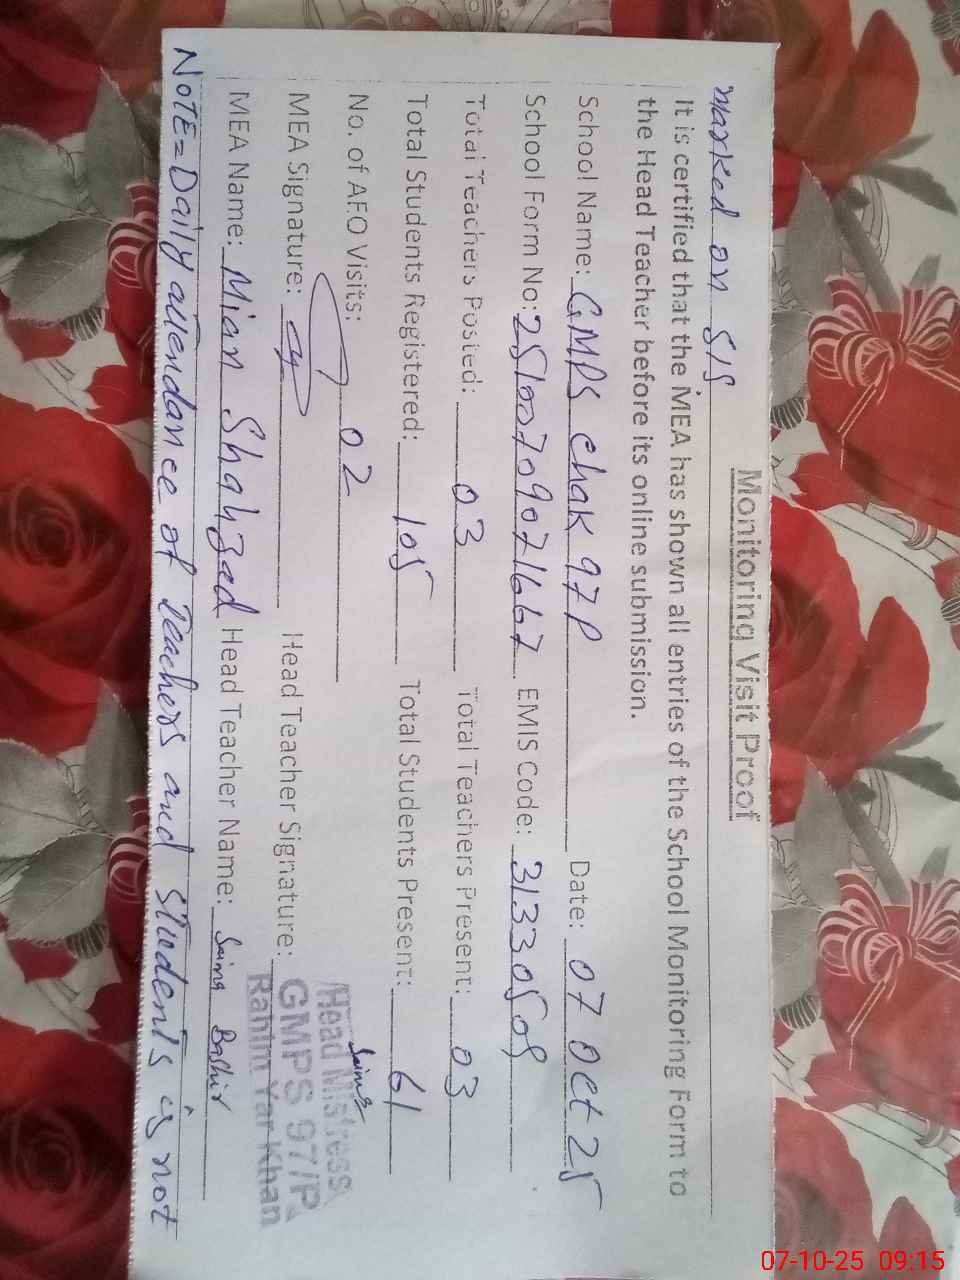 marked on SIS
Monitoring Visit Proof
It is certified that the MEA has shown all entries of the School Monitoring Form to
the Head Teacher before its online submission.
School Name: GMPS chak 97P Date: 07 Oct 25
School Form No: EMIS Code: 31330509
Total Teachers Posted: 03 Total Teachers Present: 03
Total Students Registered: 105 Total Students Present: 61
No. of AEO Visits: 02
MEA Signature: Head Teacher Signature: Saima
Head Mistress
GMPS 97/P
Rahim Yar Khan
MEA Name: Mian Shahzad Head Teacher Name: Saima Bashir
NOTE= Daily attendance of Teachers and Students is not
07-10-25 09:15